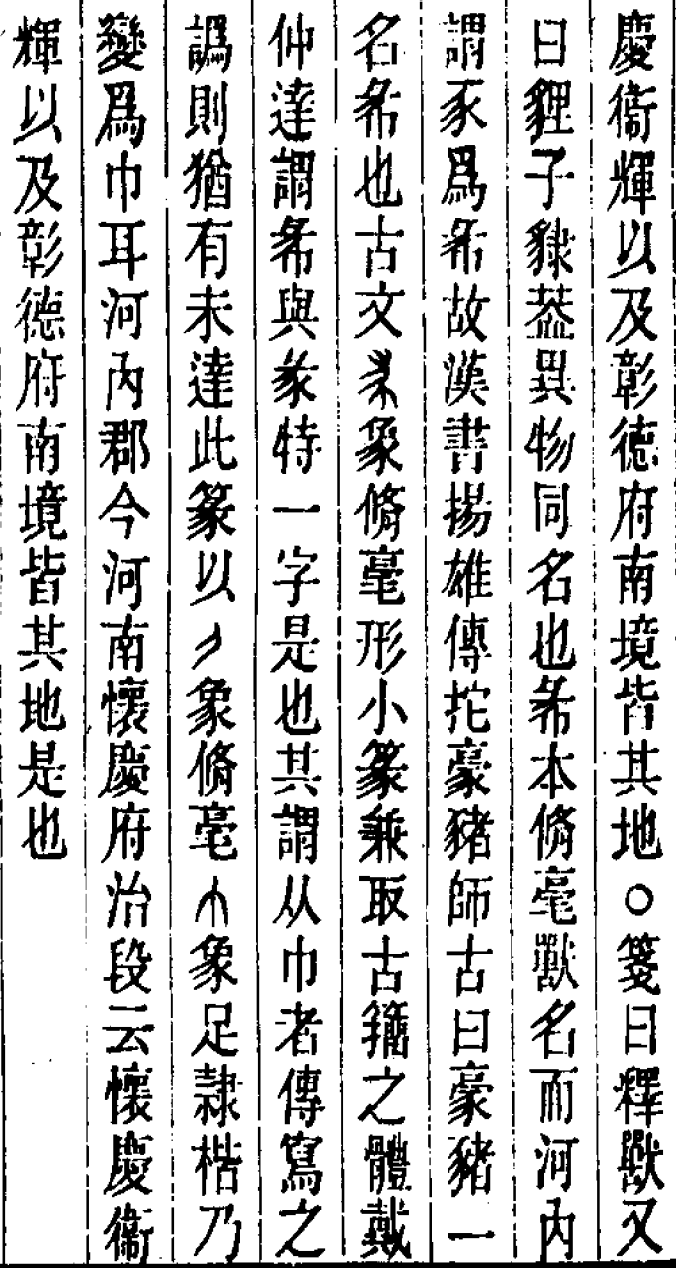 慶衞輝以及彰德府南境皆其地○箋曰釋獸又
曰貍子䝥葢異物同名也㣇本脩毫獸名而河內
謂豕爲㣇故漢書揚雄傳拕豪豬師古曰豪豬一
名㣇也古文㣇象脩毫形小篆兼取古籒之體戴
仲達謂㣇與彖特一字是也其謂从巾者傳寫之
譌則猶有未達此篆以象脩毫象足隷楷乃
變爲巾耳河內郡今河南懷慶府治段云懷慶衞
輝以及彰德府南境皆其地是也